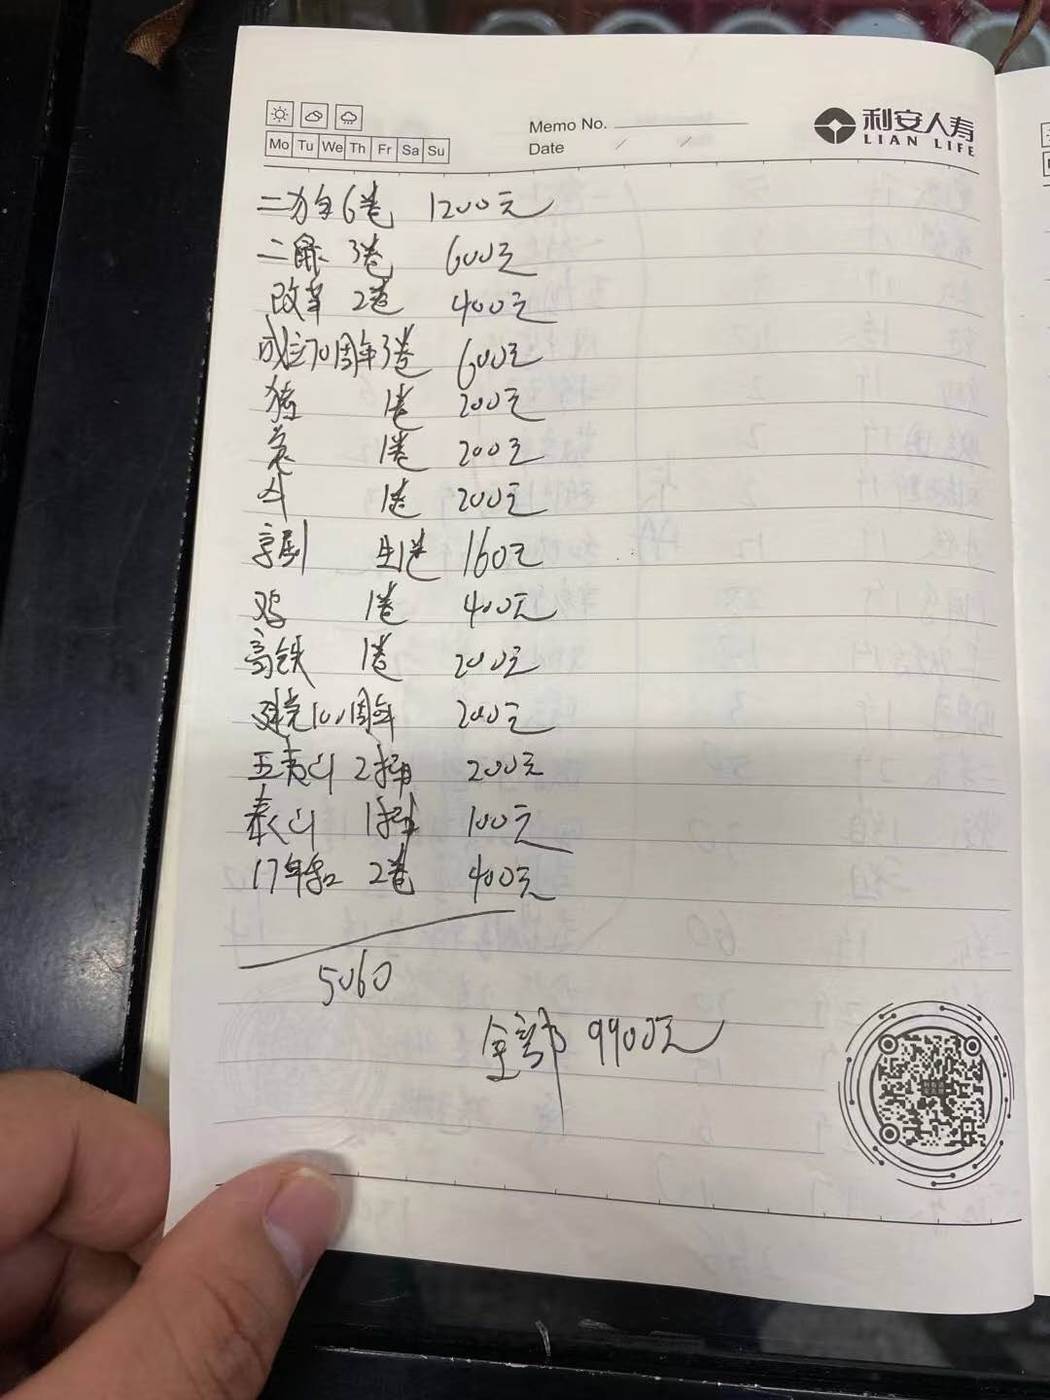 Memo No.
Date / /
利安人寿
LIAN LIFE
Mo Tu We Th Fr Sa Su
二 6卷 1200元
二鼠 3卷 600元
改革 2卷 400元
成立70周年3卷 600元
猪 1卷 200元
1卷 200元
牛 1卷 200元
京剧 1卷 160元
鸡 1卷 400元
高铁 1卷 200元
建党100周年 200元
五夷山 2 200元
泰山 1 100元
17年 2卷 400元
5060
全部 9900元